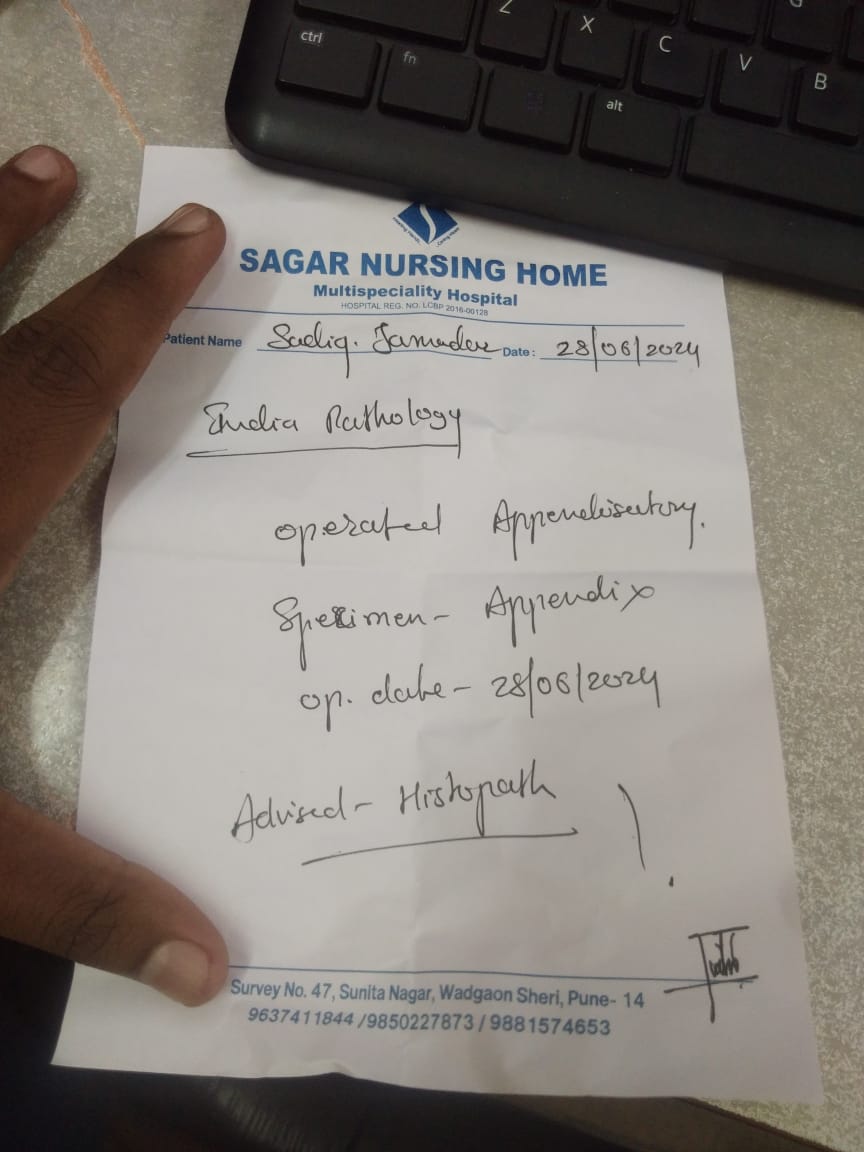 ctrl
fn
alt
Z
X
C
V
B
G
SAGAR NURSING HOME
Multispeciality Hospital
HOSPITAL REG. NO. LCBP 2016-00128
Patient Name Sadiq. Jamadar Date: 28/06/2024
Pathology
operated Appendisectory.
Specimen - Appendix
op. date - 28/06/2024
Advised - Histopath
Survey No. 47, Sunita Nagar, Wadgaon Sheri, Pune- 14
9637411844 /9850227873 / 9881574653